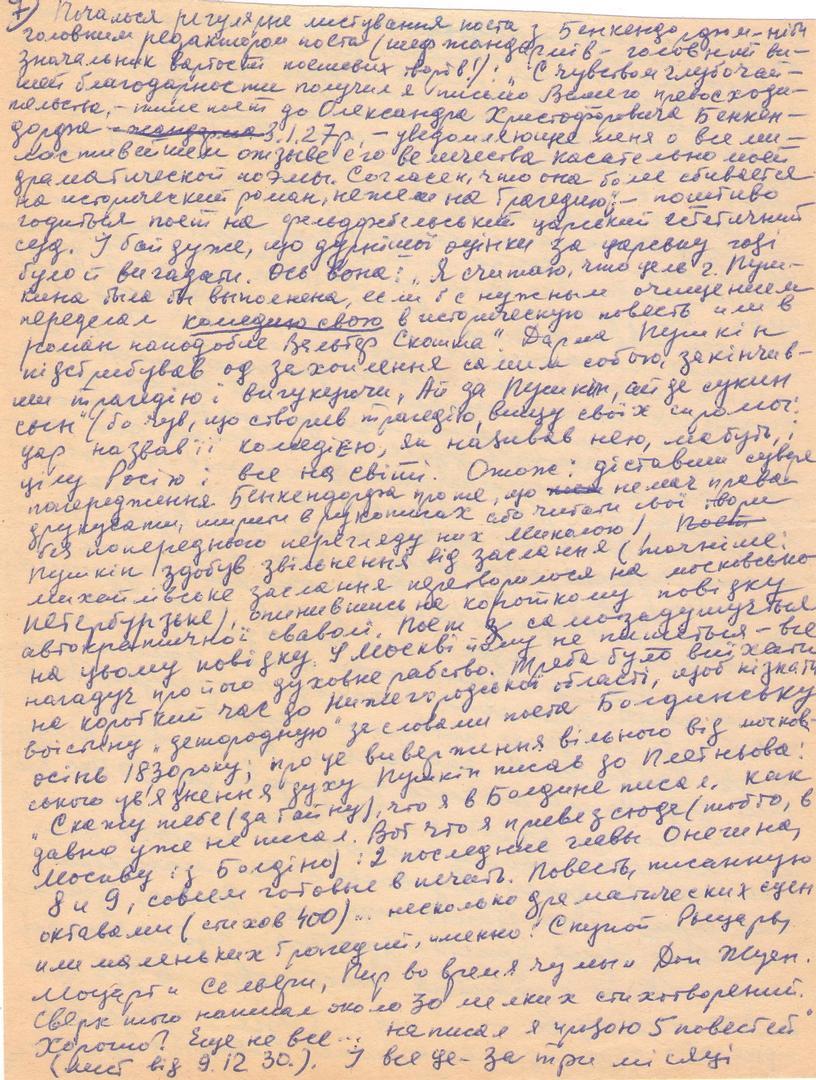 7) Почалося регулярне листування поета з Бенкендорфом - ніби
головним редактором поета (шеф жандармів - головний ви-
значальник вартости поетевих творів!): „С чувством глубочай-
шей благодарности получил я письмо Вашего превосходи-
тельства, - пише поет до Олександра Христофоровича Бенкен-
дорфа 3.1.27р, - уведомляющее меня о всеми-
лостивейшем отзыве его величества касательно моей
драматической поэмы. Согласен, что она более сбивается
на исторический роман, нежели на трагедию; - поштиво
годиться поет на фельдфебельський царский естетичний
суд. І байдуже, що дурнішої оцінки за царську годі
було й вигадати. Ось вона: „Я считаю, что цель г. Пуш-
кина была бы выполнена, если б с нужным очищением
переделал комедию свою в историческую повесть или в
роман наподобие Вальтер Скотта" Дарма Пушкін
підстрибував од захоплення самим собою, закінчив-
ши трагедію і вигукуючи „Ай да Пушкин, ай да сукин
сын" (бо чув, що створив трагедію, вищу своїх спромог:
цар назвав її комедією, як називав нею, мабуть, і
цілу Росію і все на світі. Отож: діставши суворе
попередження Бенкендорфа про те, що не має права
друкувати, ширити в рукописах або читати свої твори
без попереднього перегляду них Миколою I, Поет
Пушкін здобув звільнення від заслання (точніше:
михайлівське заслання перетворилося на московсько
петербурзьке), опинившись на короткому повідку
автократичної сваволі. Поет самозадушується
на цьому повідку. У Москві йому не пишеться - все
нагадує про його духовне рабство. Треба було виїхати
на короткий час до Нижегородської області, щоб пізнати
воістину „детородную" за словами поета Болдинську
осінь 1830 року; про це виверження вільного від москов-
ського ув'язнення духу Пушкін писав до Плетньова:
„Скажу тебе (за тайну), что я в Болдине писал, как
давно уже не писал. Вот что я привез сюда (тобто, в
Москву із Болдіно): 2 последние главы Онегина,
8 и 9, совсем готовые в печать. Повесть, писанную
октавами (стихов 400)... несколько драматических сцен
или маленьких трагедий, именно: Скупой Рыцарь,
Моцарт и Сальери, Пир во время чумы и Дон Жуан.
Сверх того написал около 30 мелких стихотворений.
Хорошо? Еще не все... написал я прозою 5 повестей"
(лист від 9.12.30.). І все це - за три місяці